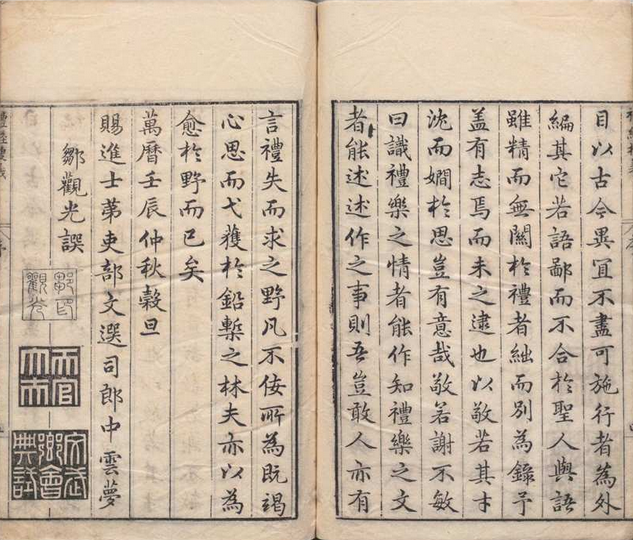 目以古今異宜不盡可施行者為外
編其它若語鄙而不合於聖人與語
雖精而無關於禮者絀而別為錄予
蓋有志焉而未之逮也以敬若其才
沈而嫺於思豈有意哉敬若謝不敏
曰識禮樂之情者能作知禮樂之文
者能述述作之事則吾豈敢人亦有
言禮失而求之野凡不佞所為既竭
心思而弋獲於鉛槧之林夫亦以為
愈於野而已矣
萬曆壬辰仲秋穀旦
賜進士第吏部文選司郎中雲夢
鄒觀光譔
鄒印觀光
天官大夫
文武鄉會典試